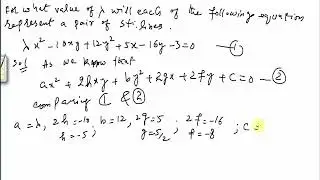 for what value of λ will each of the following equation
represent a pair of st. lines.
λx² - 10xy + 12y² + 5x - 16y - 3 = 0 — ①
Sol As we know that
ax² + 2hxy + by² + 2gx + 2fy + c = 0 — ②
comparing ① & ②
a = λ, 2h = -10, b = 12, 2g = 5 ; 2f = -16 ; c =
h = -5 ; g = 5/2 ; f = -8